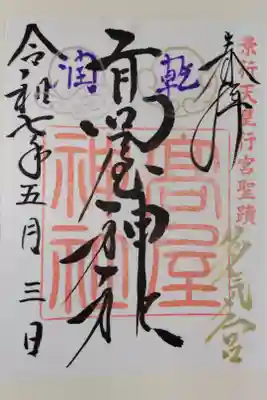 景行天皇行宮聖蹟
奉拝
乾
高屋神社
高屋神社
潤
令和七年五月三日